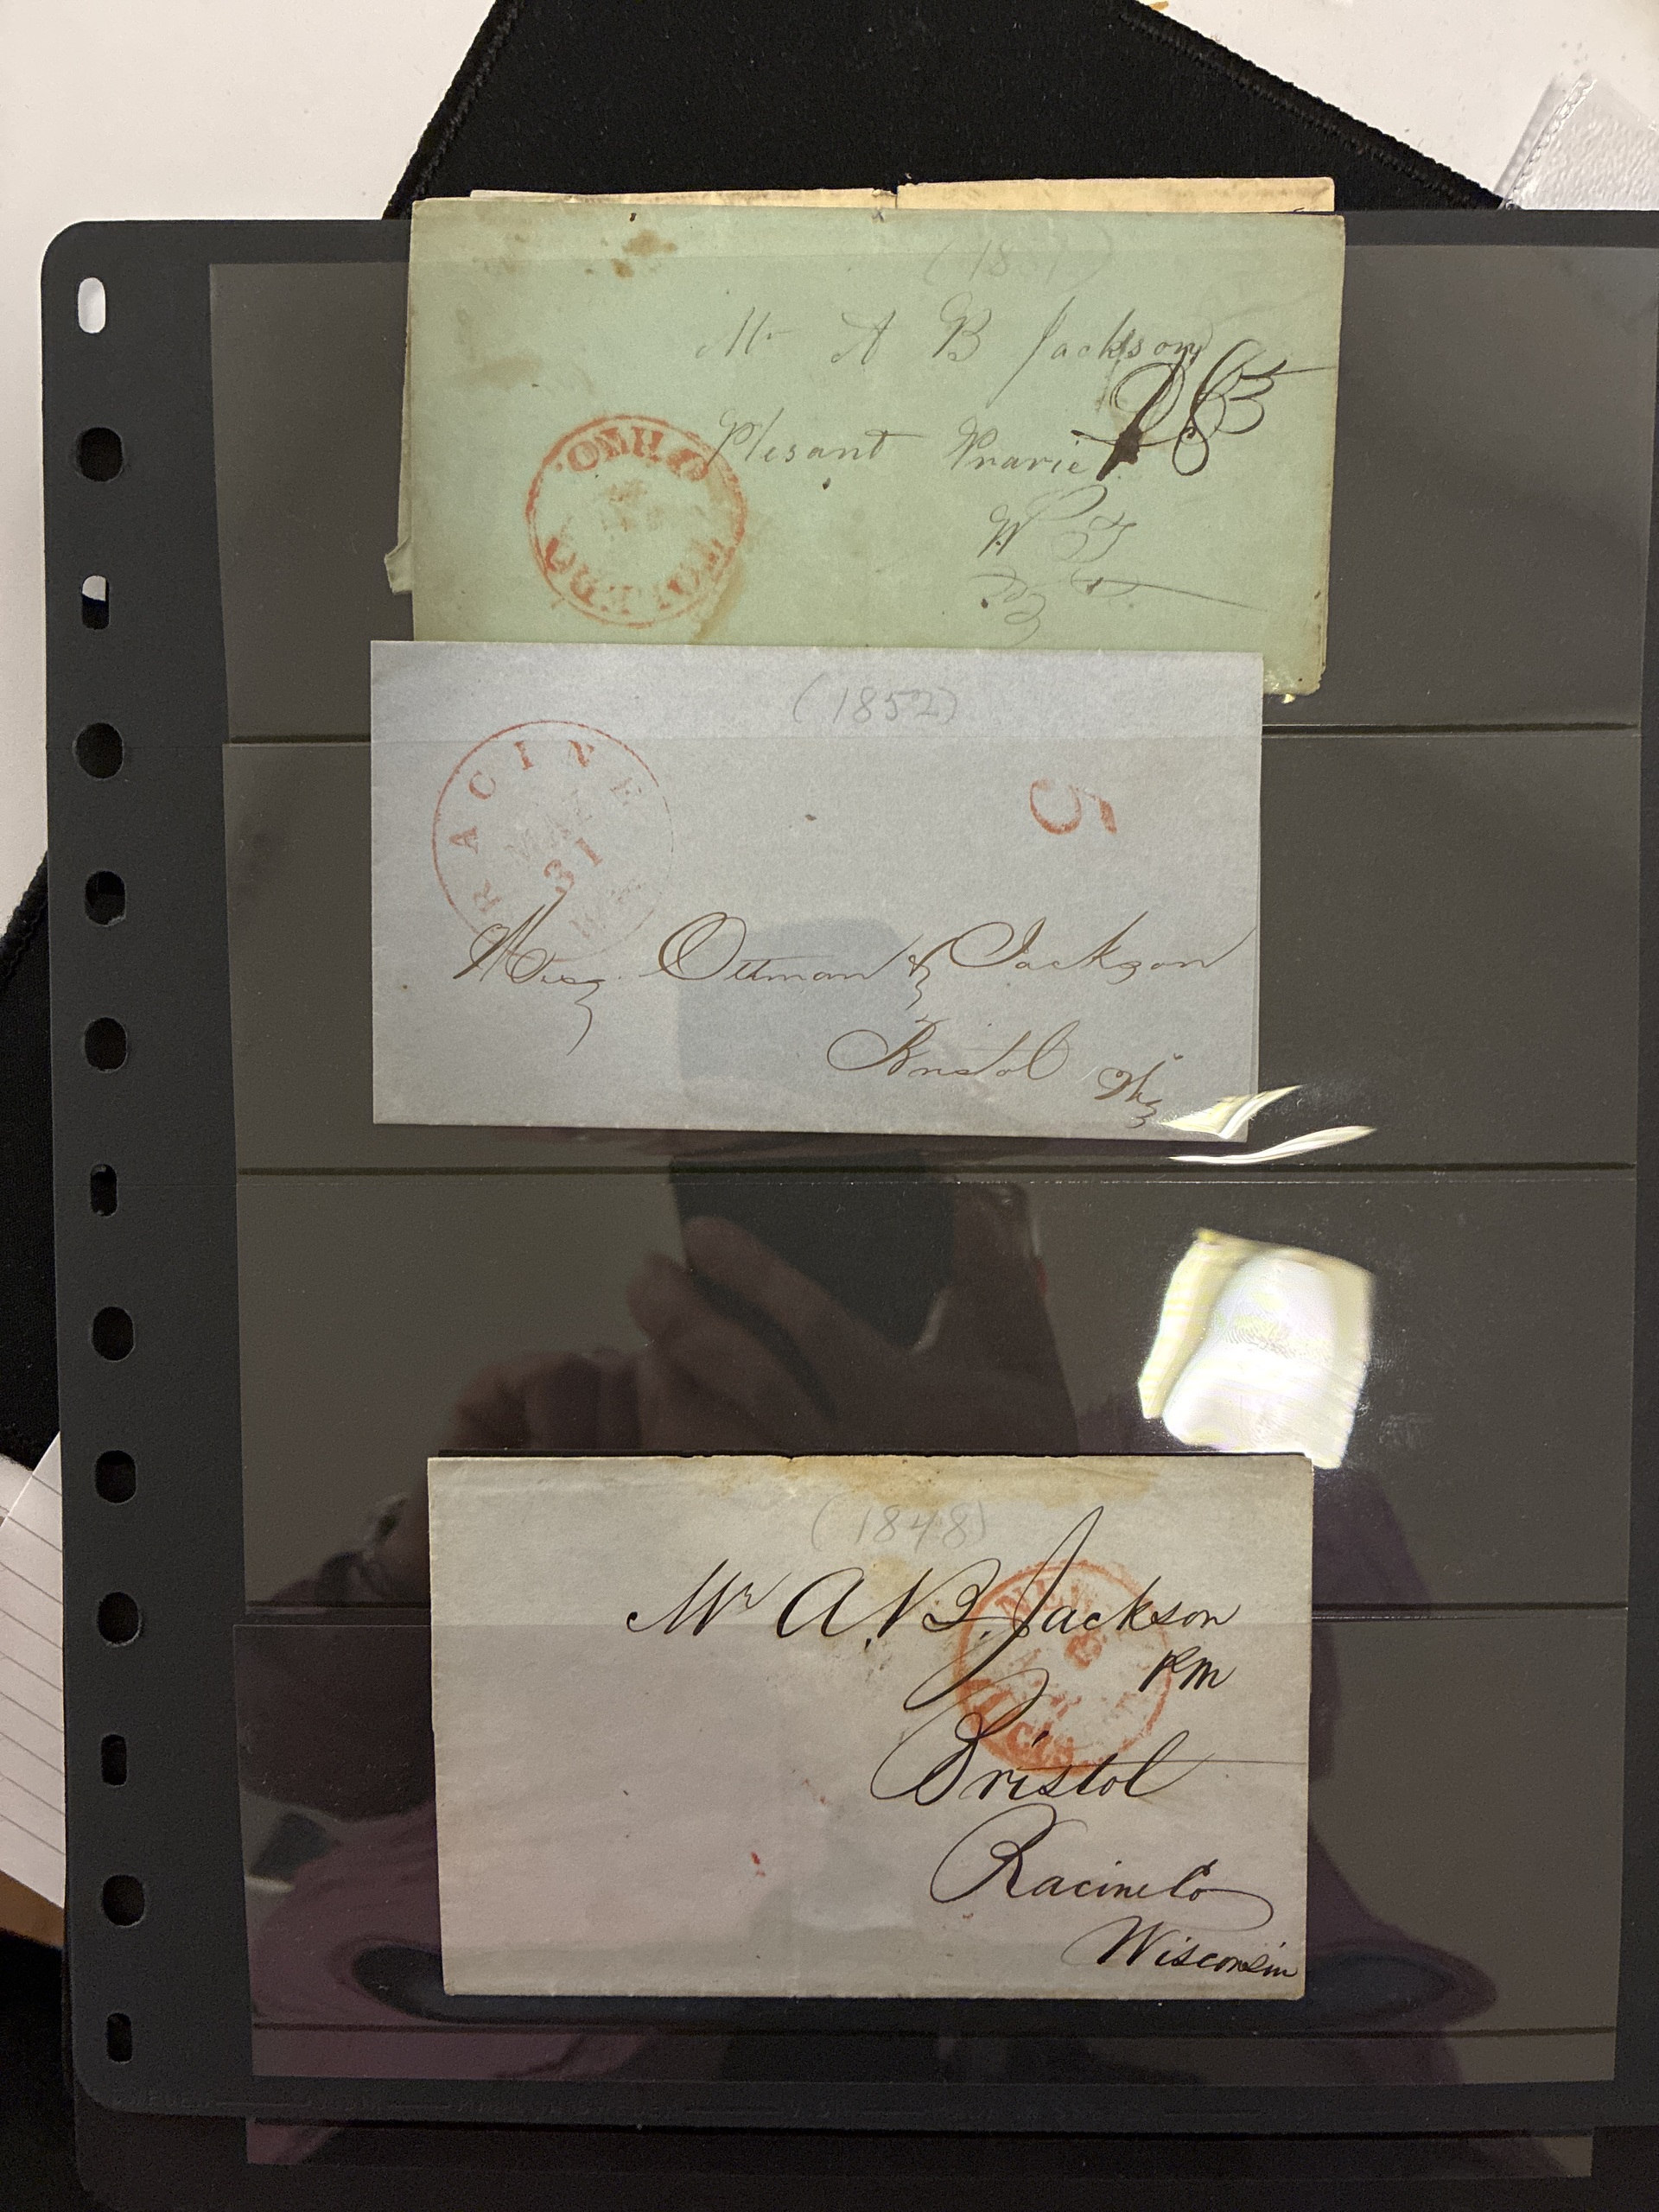 Mr A B Jackson
Plesant Prarie
W T
(1852)
RACINE
MAY
31
5
Ottman & Jackson
Bristol Wis
(1848)
Mr A. B. Jackson
PM
Bristol
Racine Co
Wisconsin